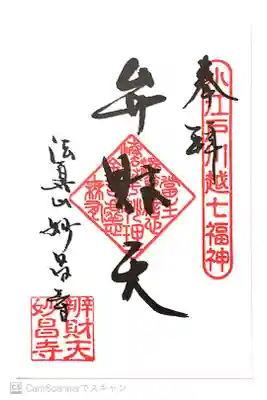 小江戸川越七福神
奉拝
弁財天
法眞山妙昌寺
辨財天
妙昌寺
CamScannerでスキャン